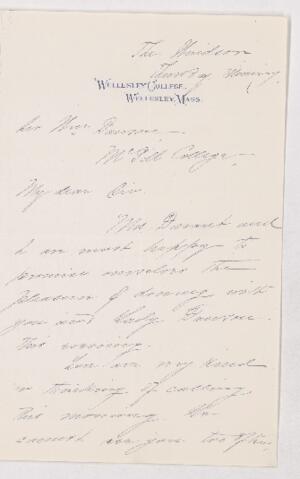 The Windsor
Thursday Morning
WELLESLEY COLLEGE,
WELLESLEY, MASS.
Sir Wm Dawson —
McGill College —
My dear Sir
Mrs Durant and
I are most happy to
promise ourselves the
pleasure of dining with
you and Lady Dawson
this evening.
You are very kind
in thinking of calling
this morning. We
cannot see you too often,